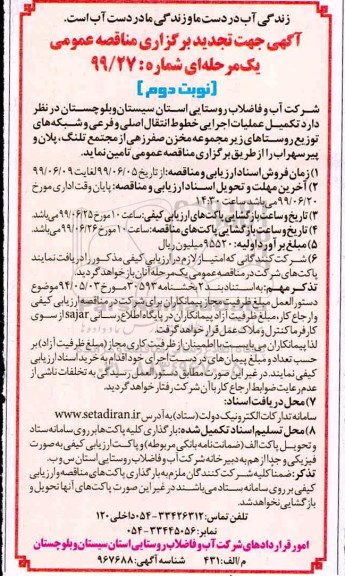 زندگی آب در دست ما و زندگی ما در دست آب است.
آگهی جهت تجدید برگزاری مناقصه عمومی
یک مرحله‌ای شماره: ۹۹/۲۷
(نوبت دوم)
شرکت آب و فاضلاب روستایی استان سیستان و بلوچستان در نظر
دارد تکمیل عملیات اجرایی خطوط انتقال اصلی و فرعی و شبکه‌های
توزیع روستاهای زیر مجموعه مخزن صفرزهی از مجتمع تلنگ، پلان و
پیرسهراب را از طریق برگزاری مناقصه عمومی تامین نماید.
۱) زمان فروش اسناد ارزیابی و مناقصه: از تاریخ ۹۹/۰۶/۰۵ لغایت ۹۹/۰۶/۰۹
۲) آخرین مهلت و تحویل اسناد ارزیابی و مناقصه: پایان وقت اداری مورخ
۹۹/۰۶/۲۰ می‌باشد ساعت ۱۴:۳۰
۳) تاریخ و ساعت بازگشایی پاکت‌های ارزیابی کیفی: ساعت ۱۰ مورخ ۹۹/۰۶/۲۵ می‌باشد.
۴) تاریخ و ساعت بازگشایی پاکت‌های مناقصه: ساعت ۱۰ مورخ ۹۹/۰۶/۲۶ می‌باشد.
۵) مبلغ برآورد اولیه: ۹۵۵۲۰ میلیون ریال
۶) شرکت کنندگانی که امتیاز لازم در ارزیابی کیفی مذکور را دریافت نمایند
پاکت‌های شرکت در مناقصه عمومی یک مرحله آنان باز خواهد گردید.
تذکر مهم: به استناد بند ۲ بخشنامه ۳۰۵۹۳ مورخ ۹۴/۰۵/۰۳ موضوع
دستورالعمل مبلغ ظرفیت مجاز پیمانکاران برای شرکت در مناقصه ارزیابی کیفی
و ارجاع کار، مبلغ ظرفیت آزاد پیمانکاران در پایگاه اطلاع رسانی sajar از سوی
کارفرما کنترل و ملاک عمل قرار خواهد گرفت.
لذا پیمانکاران می‌بایست با اطمینان از ظرفیت کاری مجاز (مبلغ ظرفیت آزاد) بر
حسب تعداد و مبلغ پیمان‌های در دست اجرای خود اقدام به خرید اسناد ارزیابی
کیفی نمایند. در غیر این صورت مطابق دستورالعمل رسیدگی به تخلفات ناشی از
عدم رعایت ضوابط ارجاع کار با آن شرکت رفتار خواهد گردید.
۷) محل دریافت اسناد:
سامانه تدارکات الکترونیک دولت (ستاد) به آدرس www.setadiran.ir
۸) محل تسلیم اسناد تکمیل شده: بارگذاری کلیه پاکت‌ها بر روی سامانه ستاد
و تحویل پاکت الف (ضمانت‌نامه بانکی مربوطه) و پاکت ارزیابی کیفی به صورت
فیزیکی و جدا از هم به دبیرخانه شرکت آب و فاضلاب روستایی استان س و ب.
تذکر: ضمنا کلیه شرکت کنندگان ملزم به بارگذاری پاکت‌های مناقصه و ارزیابی
کیفی بر روی سامانه ستاد می‌باشند در غیر این صورت پاکت‌های آنها تحویل و
بازگشایی نخواهد شد.
تلفن تماس: ۳۳۴۲۶۳۱۲-۰۵۴ داخلی ۱۲۰
نمابر: ۳۳۴۴۵۰۵۶-۰۵۴
امور قراردادهای شرکت آب و فاضلاب روستایی استان سیستان و بلوچستان
م/الف: ۴۳۱ شناسه آگهی: ۹۶۷۶۸۸